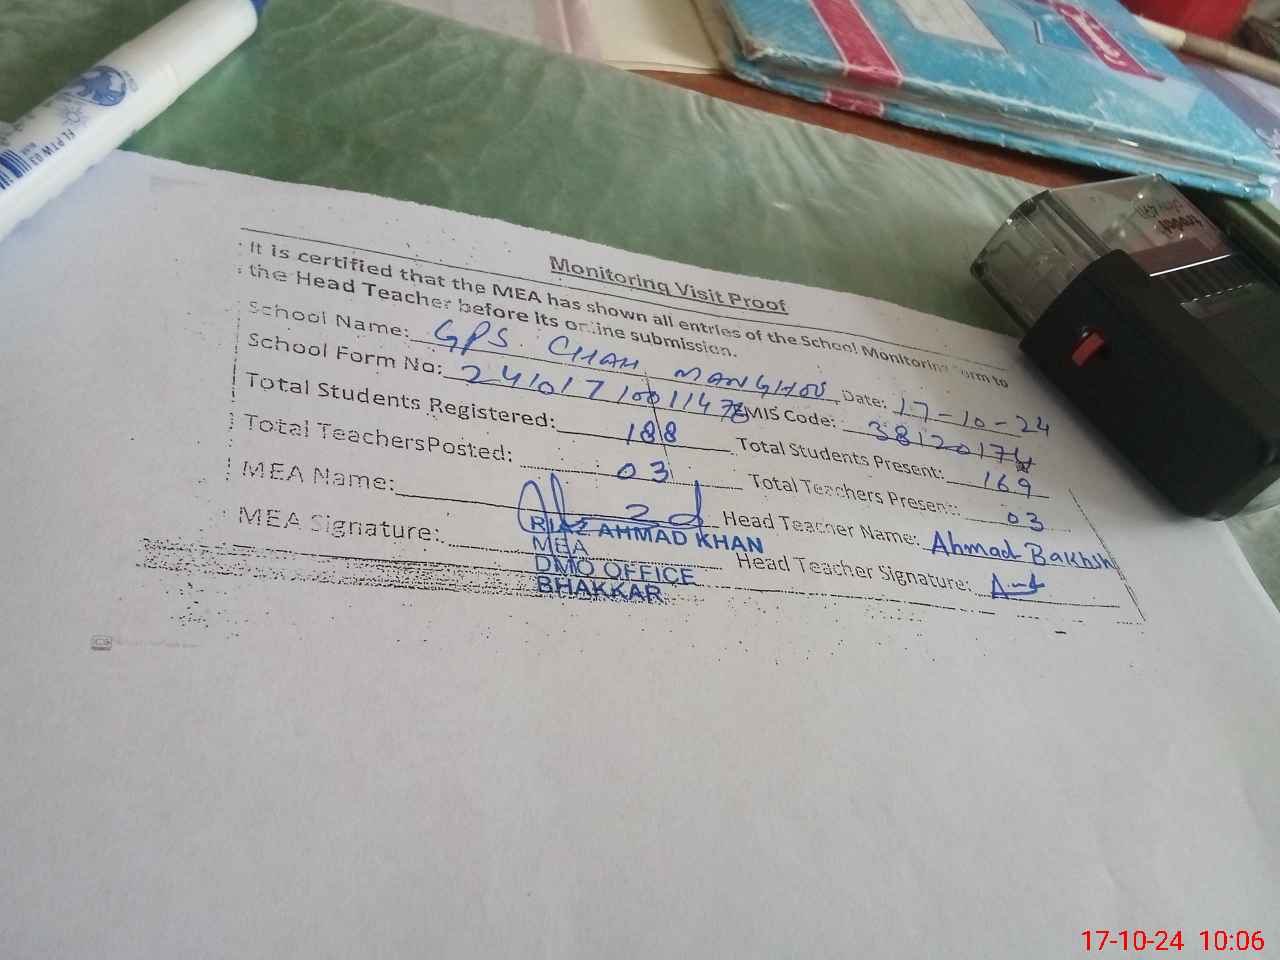 FLPTW 03
Monitoring Visit Proof
It is certified that the MEA has shown all entries of the School Monitoring Form to
the Head Teacher before its online submission.
School Name: GPS. CHAH MANGHOO Date: 17-10-24
School Form No: EMIS Code: 38120174
Total Students Registered: 188 Total Students Present: 169
Total TeachersPosted: 03 Total Teachers Present: 03
MEA Name: Head Teacher Name: Ahmad Bakhsh
RIAZ AHMAD KHAN
MEA Signature: Head Teacher Signature:
MEA
DMO OFFICE
BHAKKAR
17-10-24 10:06